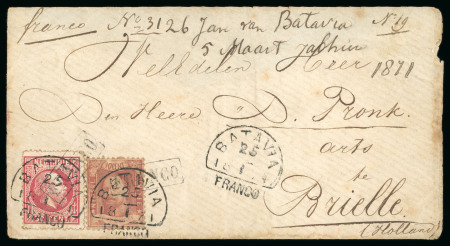 franco No 3126 Jan van Batavia No 19
5 Maart 1871
Den Heere D. Pronk
arts
te
Brielle
(Holland)
BATAVIA
25
1
FRANCO
BATAVIA
25
1
FRANCO
BATAVIA
25
1
FRANCO